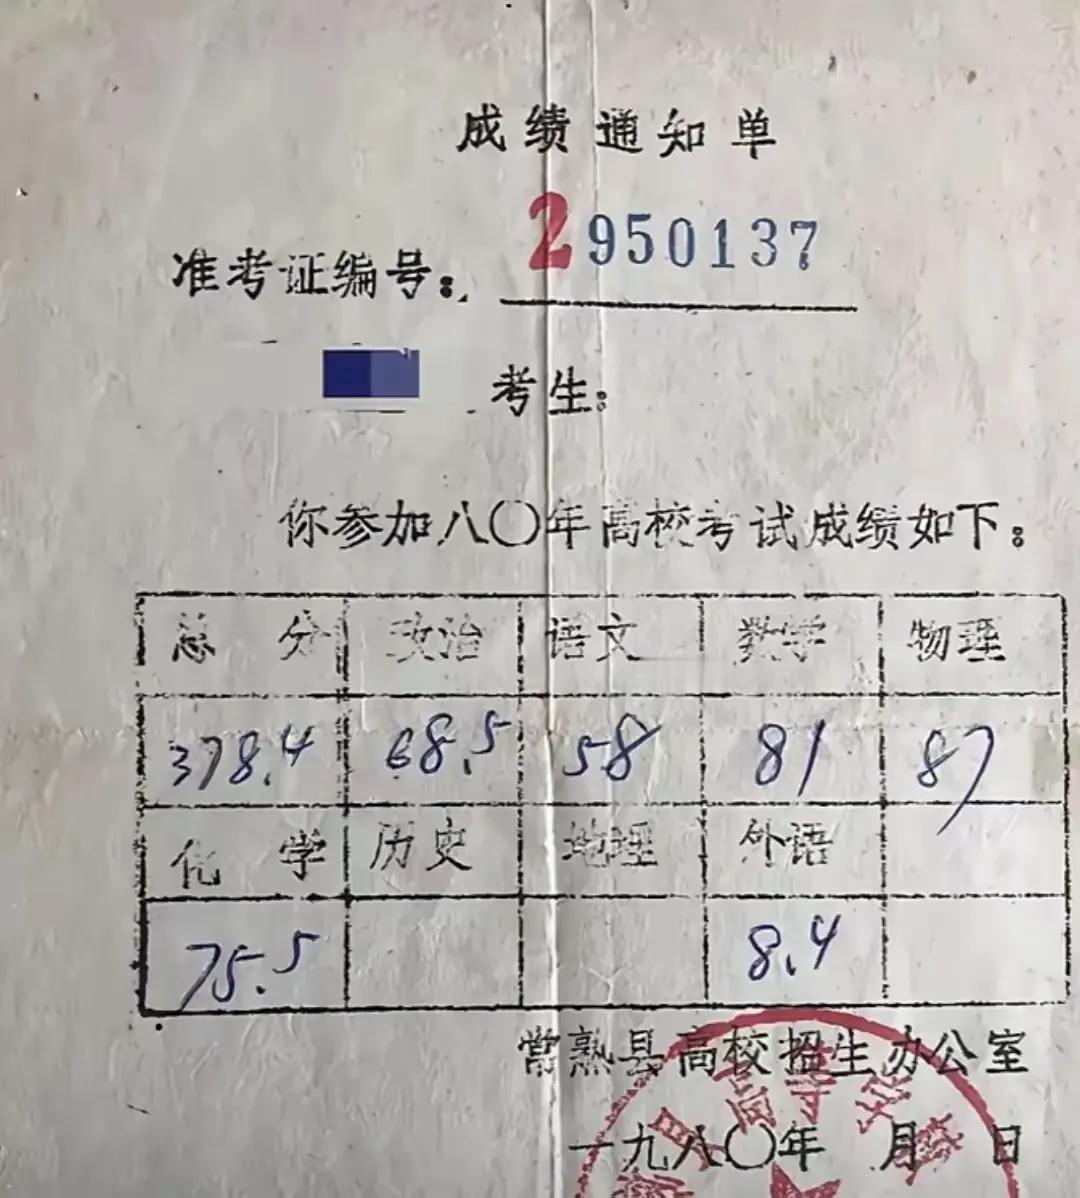 成绩通知单
准考证编号：2950137
考生：
你参加八〇年高校考试成绩如下：
总分 政治 语文 数学 物理
378.4 68.5 58 81 87
化学 历史 地理 外语
75.5 8.4
常熟县高校招生办公室
一九八〇年 月 日